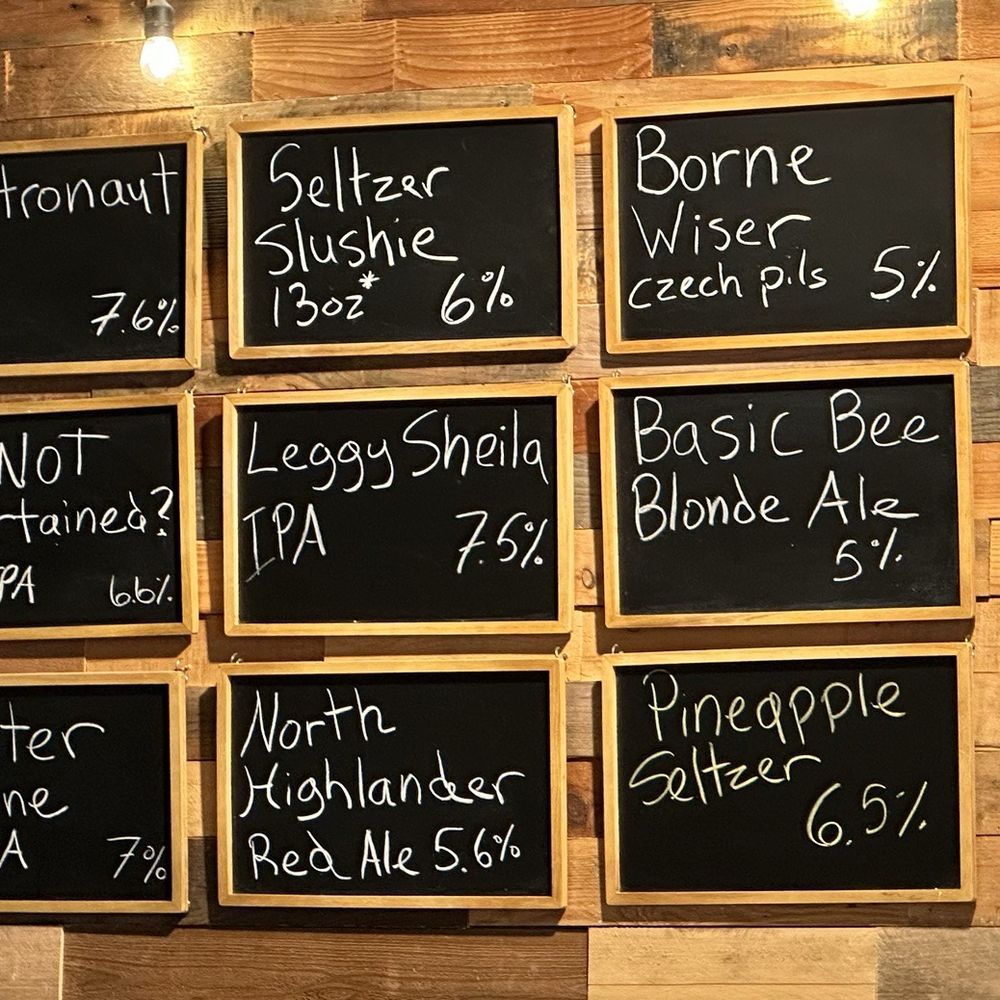 tronaut
7.6%
Seltzer
Slushie
13oz* 6%
Borne
Wiser
czech pils 5%
NOT
tained?
PA 6.6%
Leggy Sheila
IPA 7.5%
Basic Bee
Blonde Ale
5%
ter
ne
A 7%
North
Highlander
Red Ale 5.6%
Pineapple
Seltzer
6.5%